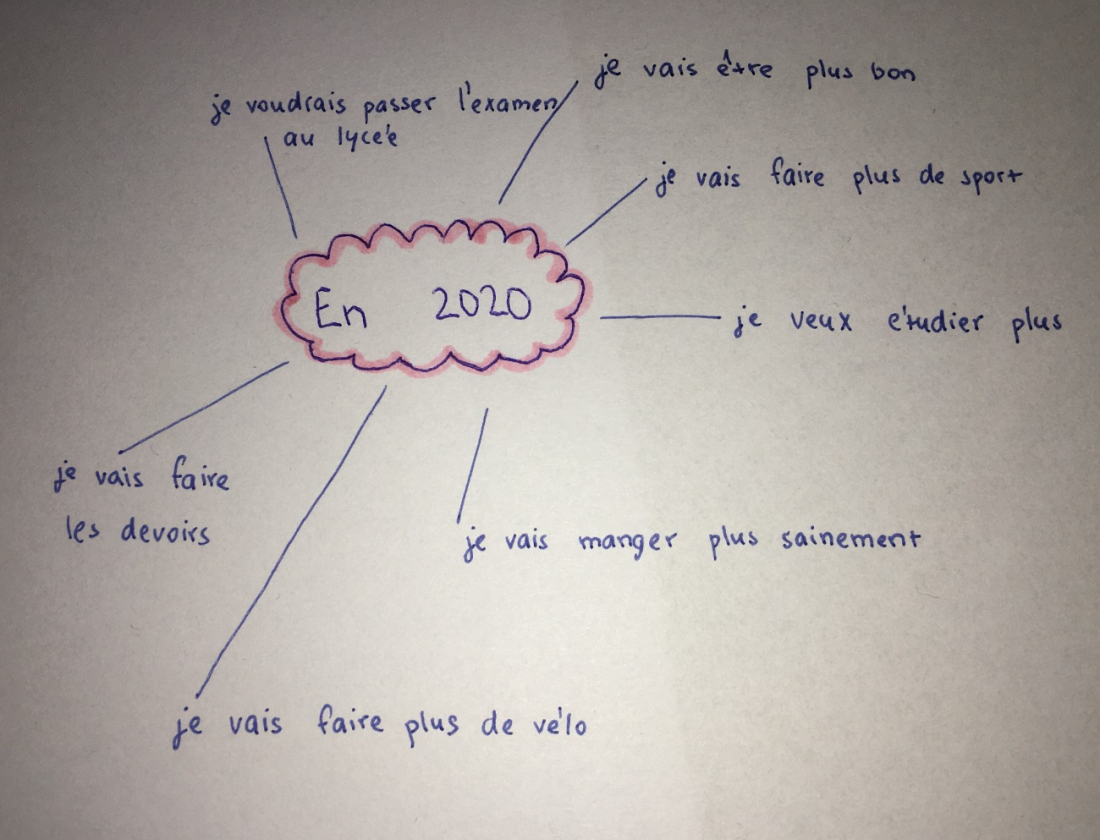 je vais être plus bon
je voudrais passer l'examen
au lycée
je vais faire plus de sport
En 2020
je veux étudier plus
je vais faire
les devoirs
je vais manger plus sainement
je vais faire plus de vélo